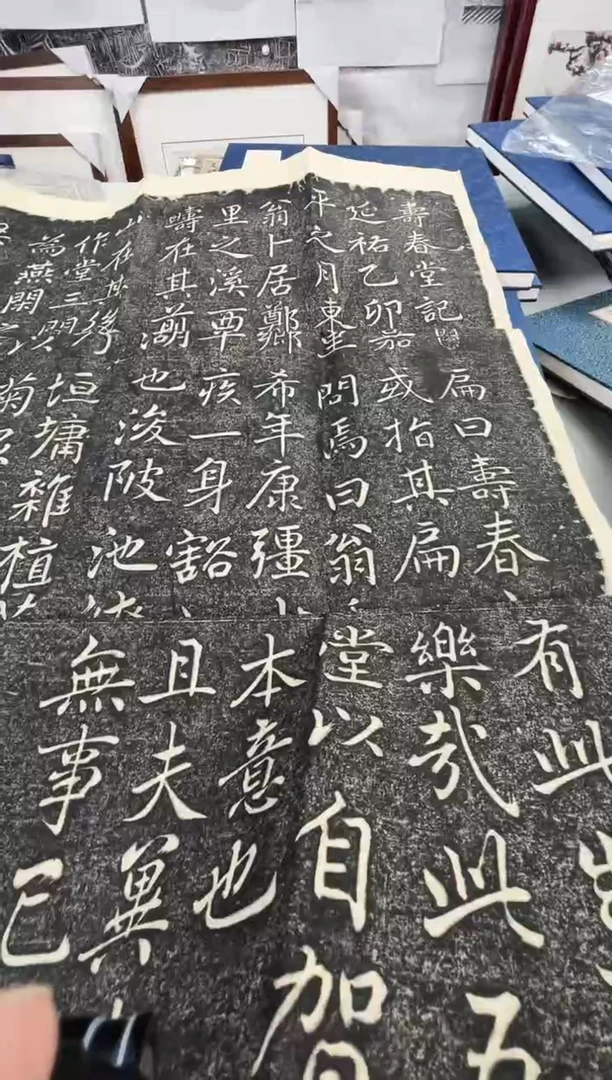 壽春堂記
延祐乙卯
平之月東
翁卜居鄭鄉
里之溪覃
疇在其
山在其後
作堂三間
為燕閑
扁曰壽春
或指其扁
問焉曰翁
希年康彊
疾一身豁
也浚陂池
垣墉雜植
菊
有此
樂哉此五
堂以自賀
本意也
且夫異
無事已